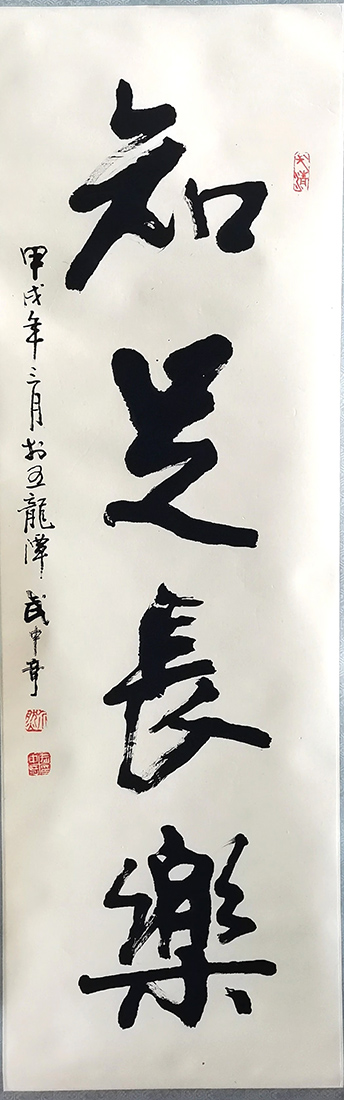 知足長樂
甲戌年三月於五龍潭武中奇